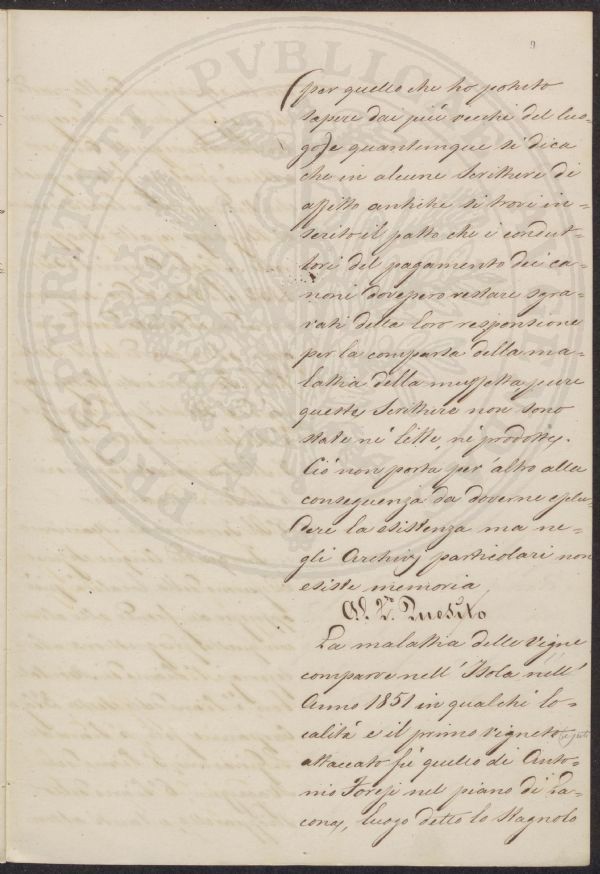 9
PROSPERITATI PVBLICAE
(per quello che ho potuto
sapere dai più vecchi del luo=
go) e quantunque si dica
che in alcune Scritture di
affitto antiche si trovi in=
serito il patto che i condut=
tori del pagamento dei ca=
noni dovepero restare sgra=
vati della loro responsione
per la comparsa della ma=
lattia della muffetta pure
queste Scritture non sono
state ne' lette, ne' prodotte.
Ciò non porta per altro alla
conseguenza da doverne esclu=
dere la esistenza ma ne=
gli Archivj particolari non
esiste memoria
Al 2.° Quesito
La malattia delle vigne
comparve nell' Isola nell'
Anno 1851 in qualche lo=
calità e il primo vigneto
attaccato fù quello di Anto=
nio Foresi nel piano di La=
cona, luogo detto lo Stagnolo